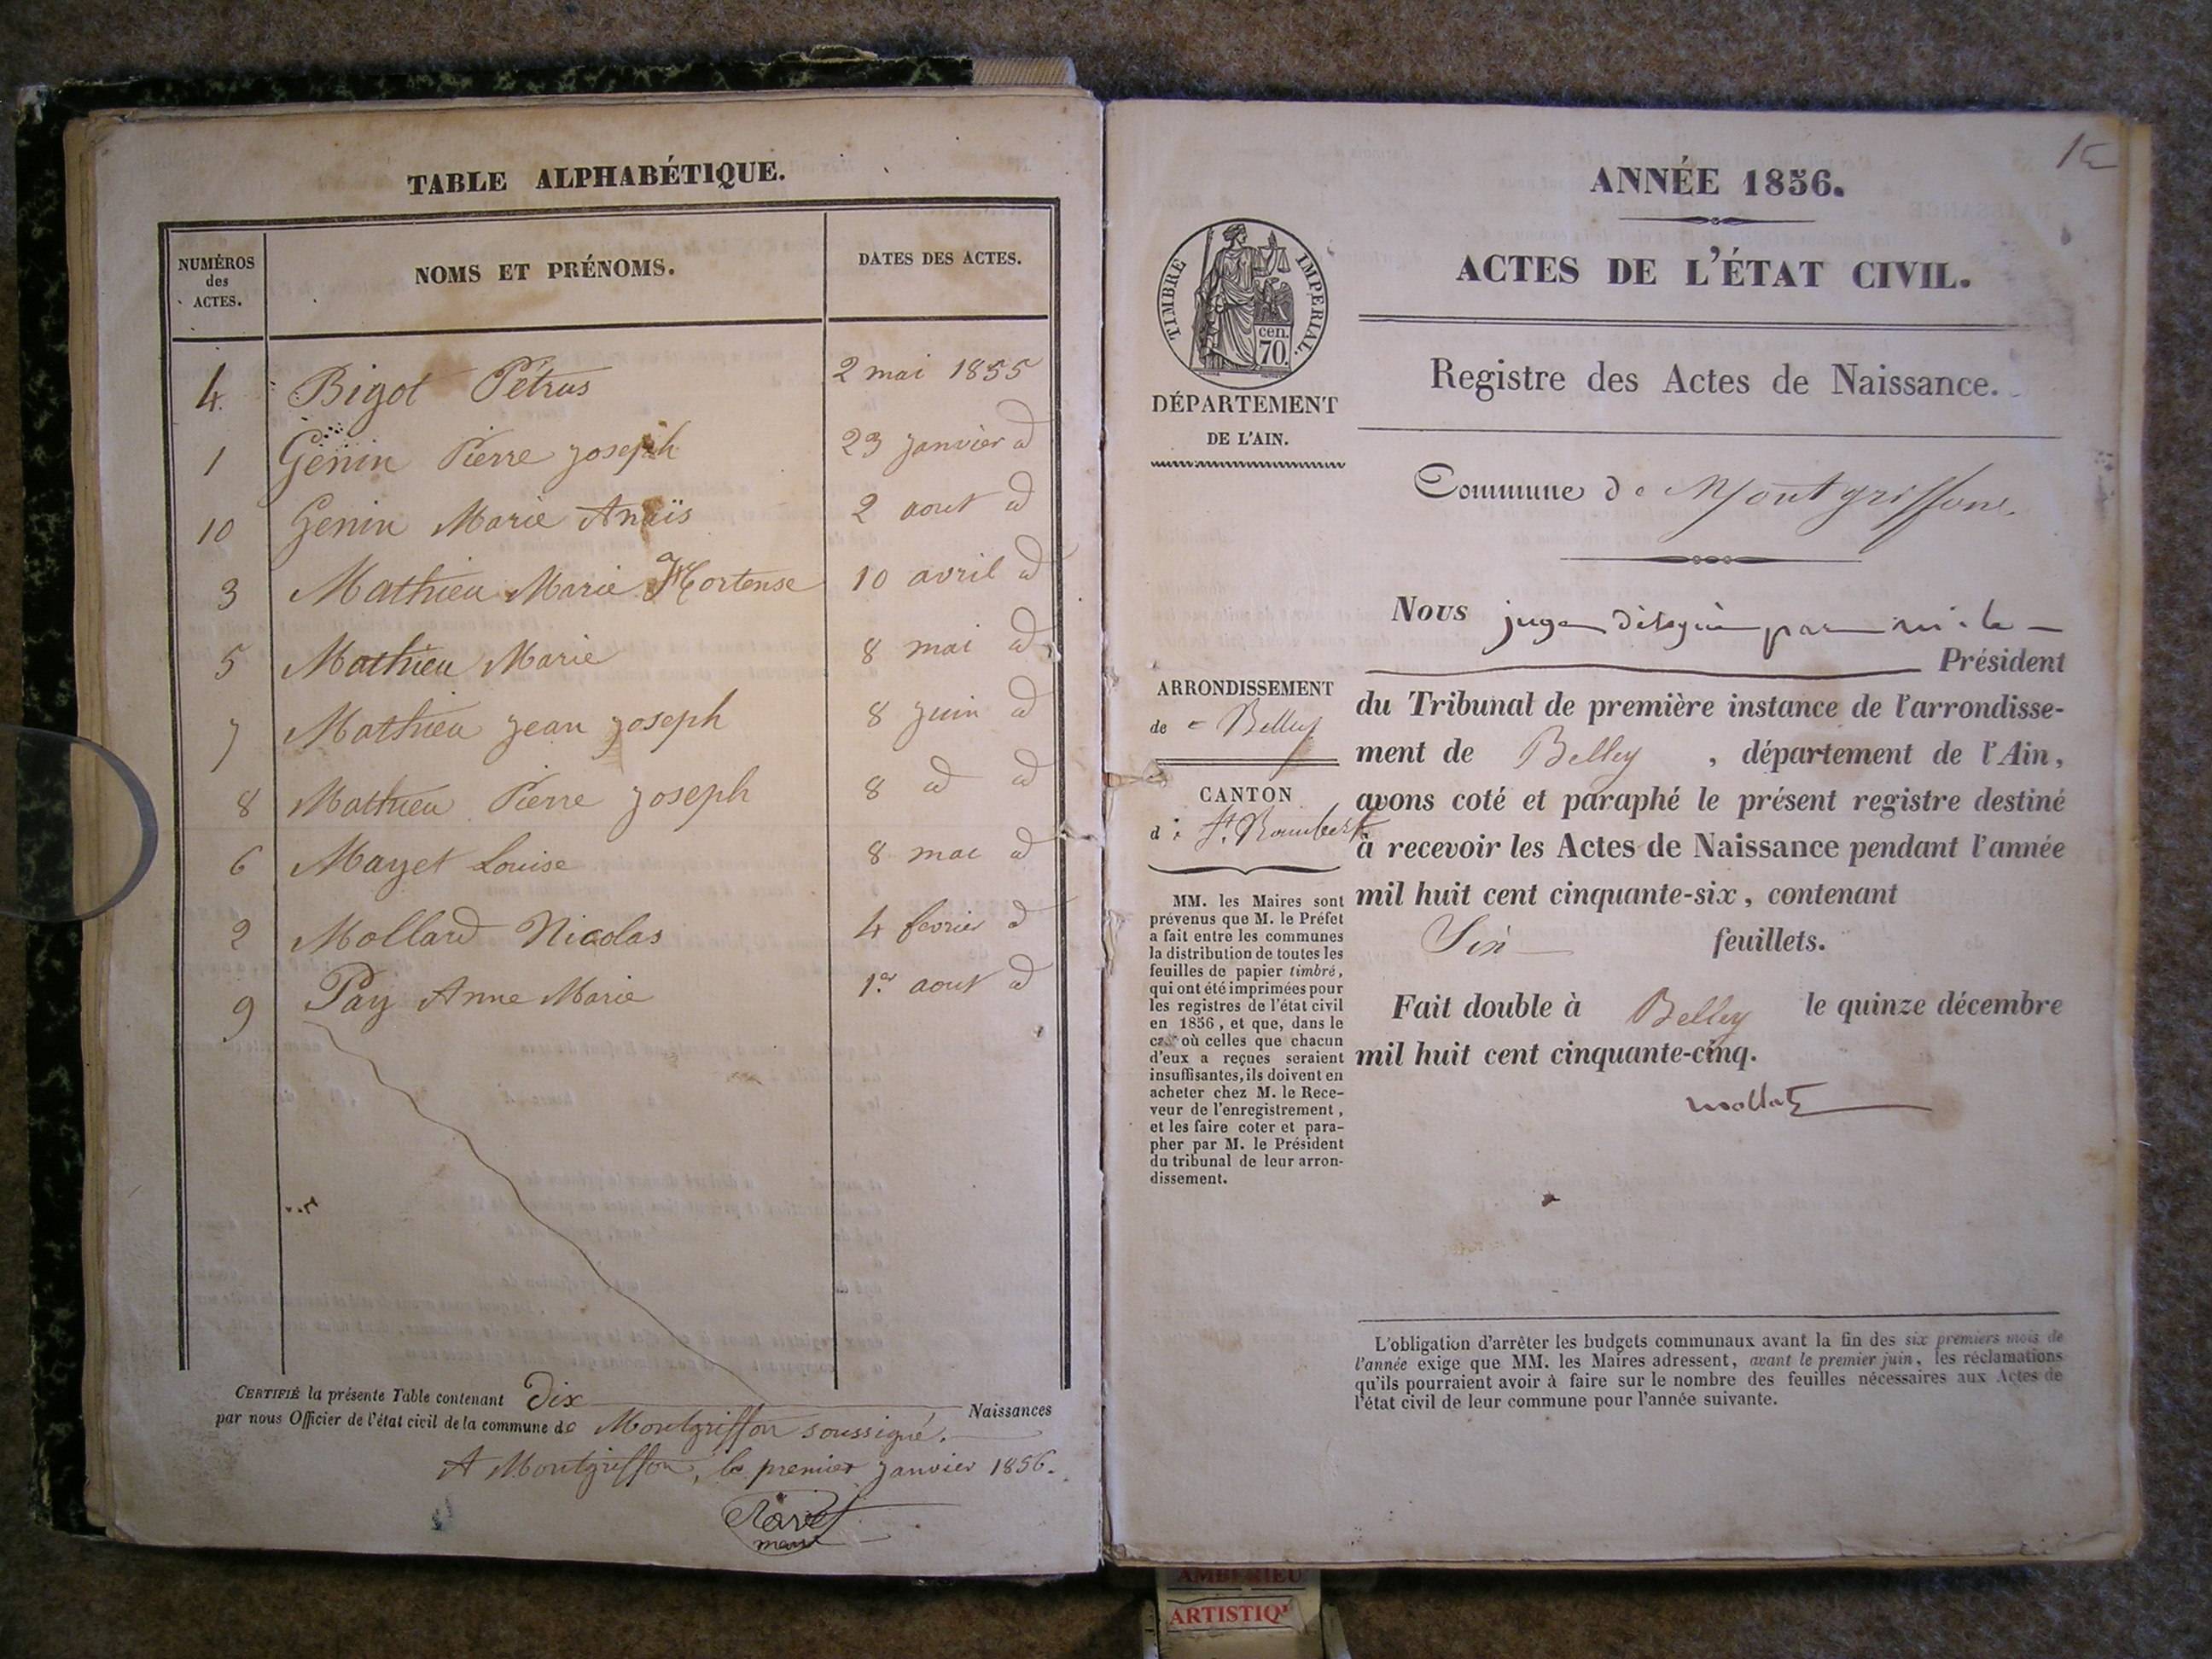 TABLE ALPHABÉTIQUE.
NUMÉROS des ACTES. NOMS ET PRÉNOMS. DATES DES ACTES.
4 Bigot Pétrus 2 mai 1855
1 Génin Pierre Joseph 23 janvier id
10 Genin Marie Anaïs 2 aout id
3 Mathieu Marie Hortense 10 avril id
5 Mathieu Marie 8 mai id
7 Mathieu Jean Joseph 8 juin id
8 Mathieu Pierre Joseph 8 id id
6 Mayet Louise 8 mai id
2 Mollard Nicolas 4 fevrier id
9 Pay Anne Marie 1er aout id
CERTIFIÉ la présente Table contenant Dix Naissances
par nous Officier de l'état civil de la commune de Montgriffon soussigné.
A Montgriffon, le premier janvier 1856.
maire
1er
ANNÉE 1856.
ACTES DE L'ÉTAT CIVIL.
TIMBRE IMPERIAL.
cen.
70.
DÉPARTEMENT
DE L'AIN.
Registre des Actes de Naissance.
Commune de Montgriffon.
Nous juge délégué par mr le
Président
du Tribunal de première instance de l'arrondisse-
ment de Belley, département de l'Ain,
avons coté et paraphé le présent registre destiné
à recevoir les Actes de Naissance pendant l'année
mil huit cent cinquante-six, contenant
Six feuillets.
Fait double à Belley le quinze décembre
mil huit cent cinquante-cinq.
ARRONDISSEMENT
de Belley
CANTON
de St. Rambert
MM. les Maires sont
prévenus que M. le Préfet
a fait entre les communes
la distribution de toutes les
feuilles de papier timbré,
qui ont été imprimées pour
les registres de l'état civil
en 1856, et que, dans le
cas où celles que chacun
d'eux a reçues seraient
insuffisantes, ils doivent en
acheter chez M. le Rece-
veur de l'enregistrement,
et les faire coter et para-
pher par M. le Président
du tribunal de leur arron-
dissement.
L'obligation d'arrêter les budgets communaux avant la fin des six premiers mois de
l'année exige que MM. les Maires adressent, avant le premier juin, les réclamations
qu'ils pourraient avoir à faire sur le nombre des feuilles nécessaires aux Actes de
l'état civil de leur commune pour l'année suivante.
AMBERIEU
ARTISTIQU